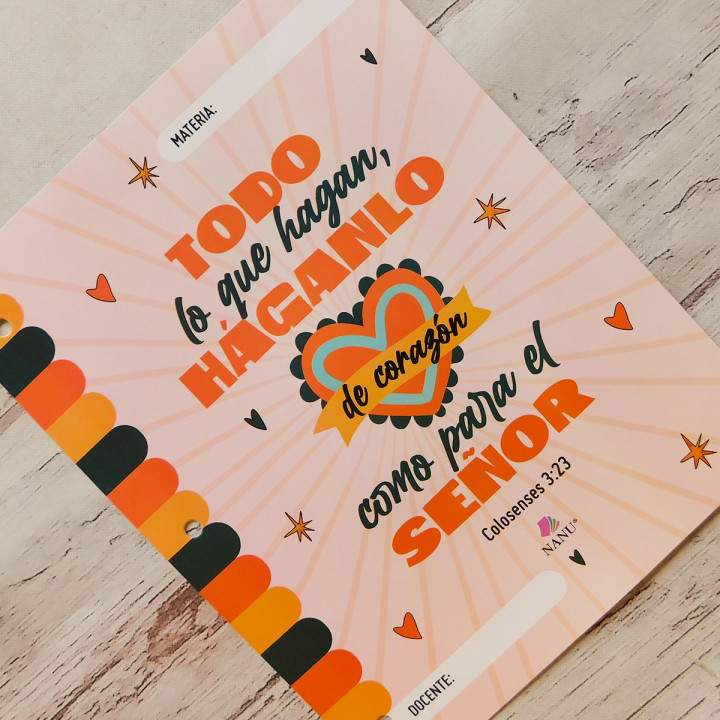 MATERIA:
TODO
lo que hagan,
HÁGANLO
de corazón
como para el
SEÑOR
Colosenses 3:23
NANU®
DOCENTE: